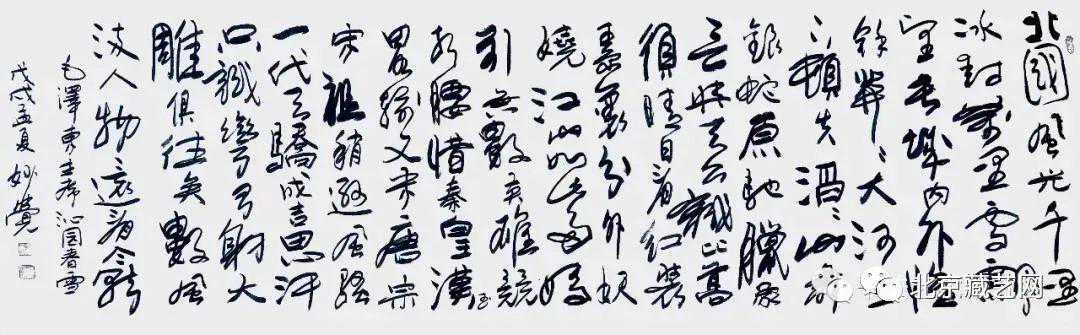 北國風光千里
冰封萬里雪飄
望長城内外惟
餘莽〻大河上
下頓失滔〻山舞
銀蛇原馳臘象
欲與天公試比高
須晴日看紅裝
素裹分外妖
嬈江山如此多嬌
引無數英雄競
折腰惜秦皇漢武
略輸文采唐宗
宋祖稍遜風騷
一代天驕成吉思汗
只識彎弓射大
雕俱往矣數風
流人物還看今朝
毛澤東主席沁園春雪
戊戌孟夏妙覺
北京藏艺网